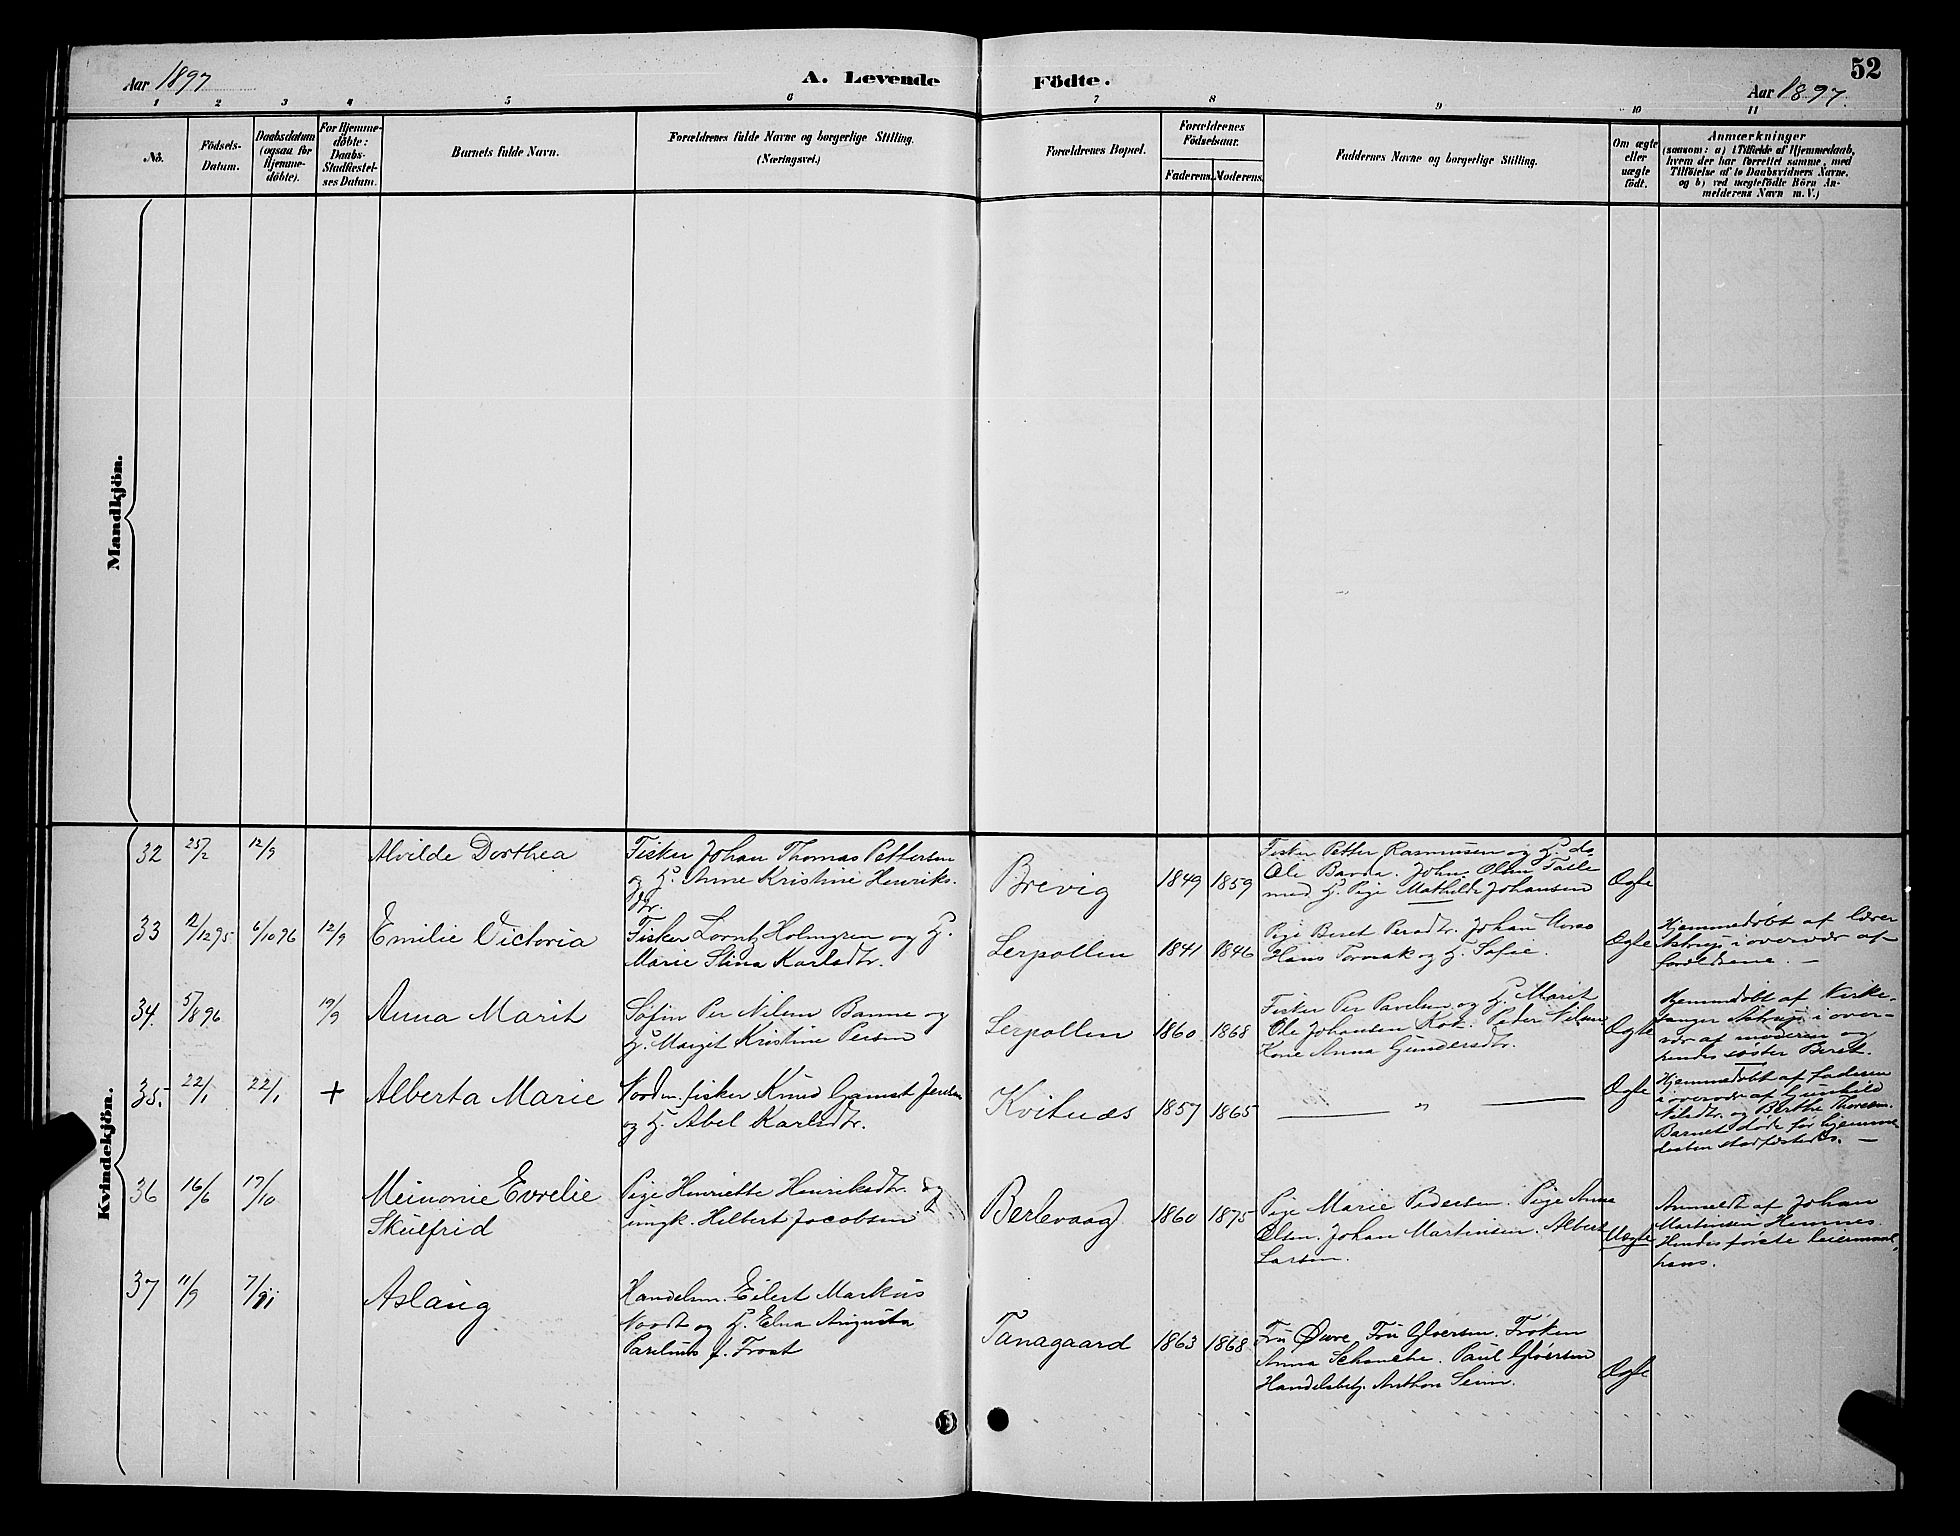 52
Aar 1897
A. Levende
Födte.
Aar 1897
1 2 3 4 5 6 7 8 9 10 11
No.
Födsels-
Datum.
Daabsdatum
(ogsaa for
Hjemme-
döbte).
For Hjemme-
döbte:
Daabs-
Stadfæstel-
ses Datum.
Barnets fulde Navn.
Forældrenes fulde Navne og borgerlige Stilling.
(Næringsvei.)
Forældrenes Bopæl.
Forældrenes
Födselsaar.
Faderens. Moderens.
Faddernes Navne og borgerlige Stilling.
Om ægte
eller
uægte
födt.
Anmærkninger
(saasom: a) i Tilfælde af Hjemmedaab,
hvem der har forrettet samme, med
Tilföielse af to Daabsvidners Navne,
og b) ved uægtefödte Börn An-
melderens Navn m. V.)
Mandkjön.
Kvindekjön.
32
25/2
12/9
Alvilde Dorthea
Fisker Johan Thomas Pettersen
og H. Anne Kristine Henriks-
dtr.
Brevig
1849
1859
Fisker Petter Rasmussen og H. do.
Ole Olsen
med H. Pige Mathilde Johansen
Ægte
33
12/12 95
6/10 96
12/9
Emilie Victoria
Fisker Lorntz Holmgren og H.
Marie Stina Karlsdtr.
Lerpollen
1841
1846
Pige Beret Persdtr. Johan
Hans Tornak og H. Sofie.
Ægte
Hjemmedøbt af lærer
Astrup i overvær af
forældrene. —
34.
5/8 96
19/9
Anna Marit
Søfin Per Nilsen Banne og
H. Margit Kristine Persen
Lerpollen
1860
1868
Fisker Per Pavelsen og H. Marit
Ole Johansen Kok. Peder Nilsen
Kone Anna Gundersdtr.
Ægte
Hjemmedøbt af Kirke-
sanger Astrup i over-
vær af moderen og
hendes søster Beret.
35.
22/1
22/1
+
Alberta Marie
Nordm. fisker Knud Gamst Jensen
og H. Abel Karlsdtr.
Kvitnæs
1857
1865
— " —
Ægte
Hjemmedøbt af faderen
i overvær af Gunhild
Nilsdtr. og Berthe Thoresen.
Barnet døde før hjemme-
daaben stadfæstedes. —
36
16/6
17/10
Meinonie Evrelie
Skulfrid
Pige Henriette Henriksdtr. og
ungk. Hilbert Jacobsen
Berlevaag
1860
1875
Pige Marie Pedersen. Pige Anna
Olsen. Johan Martinsen. Albert
Larsen.
Uægte
Anmeldt af Johan
Martinsen Hemnes.
Hendes første leiermaal,
hans.
37
11/9
7/11
Aslaug
Handelsm. Eilert Markus
Nordt og H. Elna Augusta
f. Frost
Tanagaard
1863
1868
Fru Øwre. Fru Gløersen. Frøken
Anna Schanche. Paul Gløersen
Handelsbetj. Anthon Seim.
Ægte